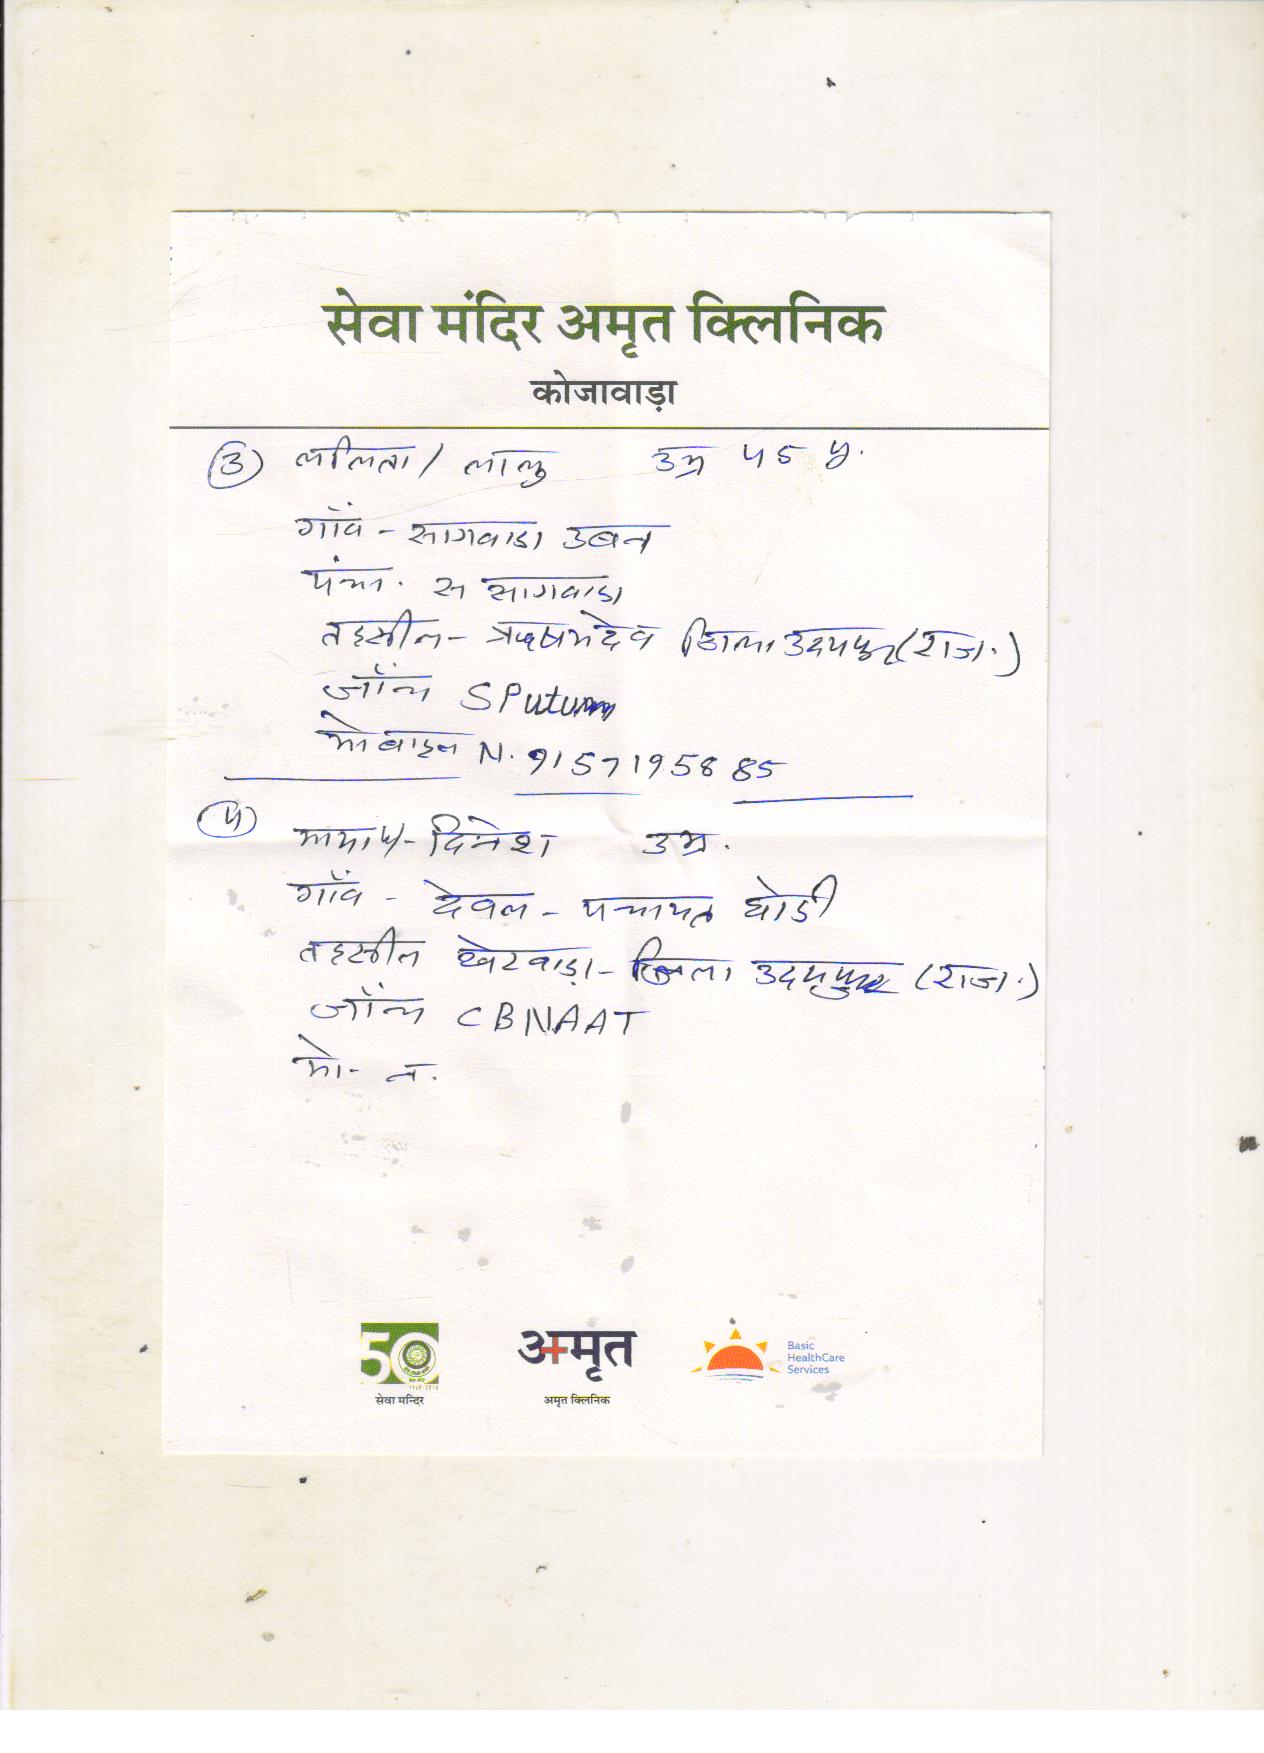 सेवा मंदिर अमृत क्लिनिक
कोजावाड़ा
③ ललिता / लालु उम्र 45 y.
गॉंव - सागवाडा उबन
पंचा. स सागवाडा
तहसील - ऋषभदेव जिला उदयपुर (राज.)
जॉंच SPutum
मोबाइल N. 9157195885
④ माया / दिनेश उम्र.
गॉंव - देवल - पंचायत घोडी
तहसील खेरवाड़ा - जिला उदयपुर (राज.)
जॉंच CBNAAT
मो- न.
50
1968-2018
सेवा मन्दिर
अमृत
अमृत क्लिनिक
Basic
HealthCare
Services